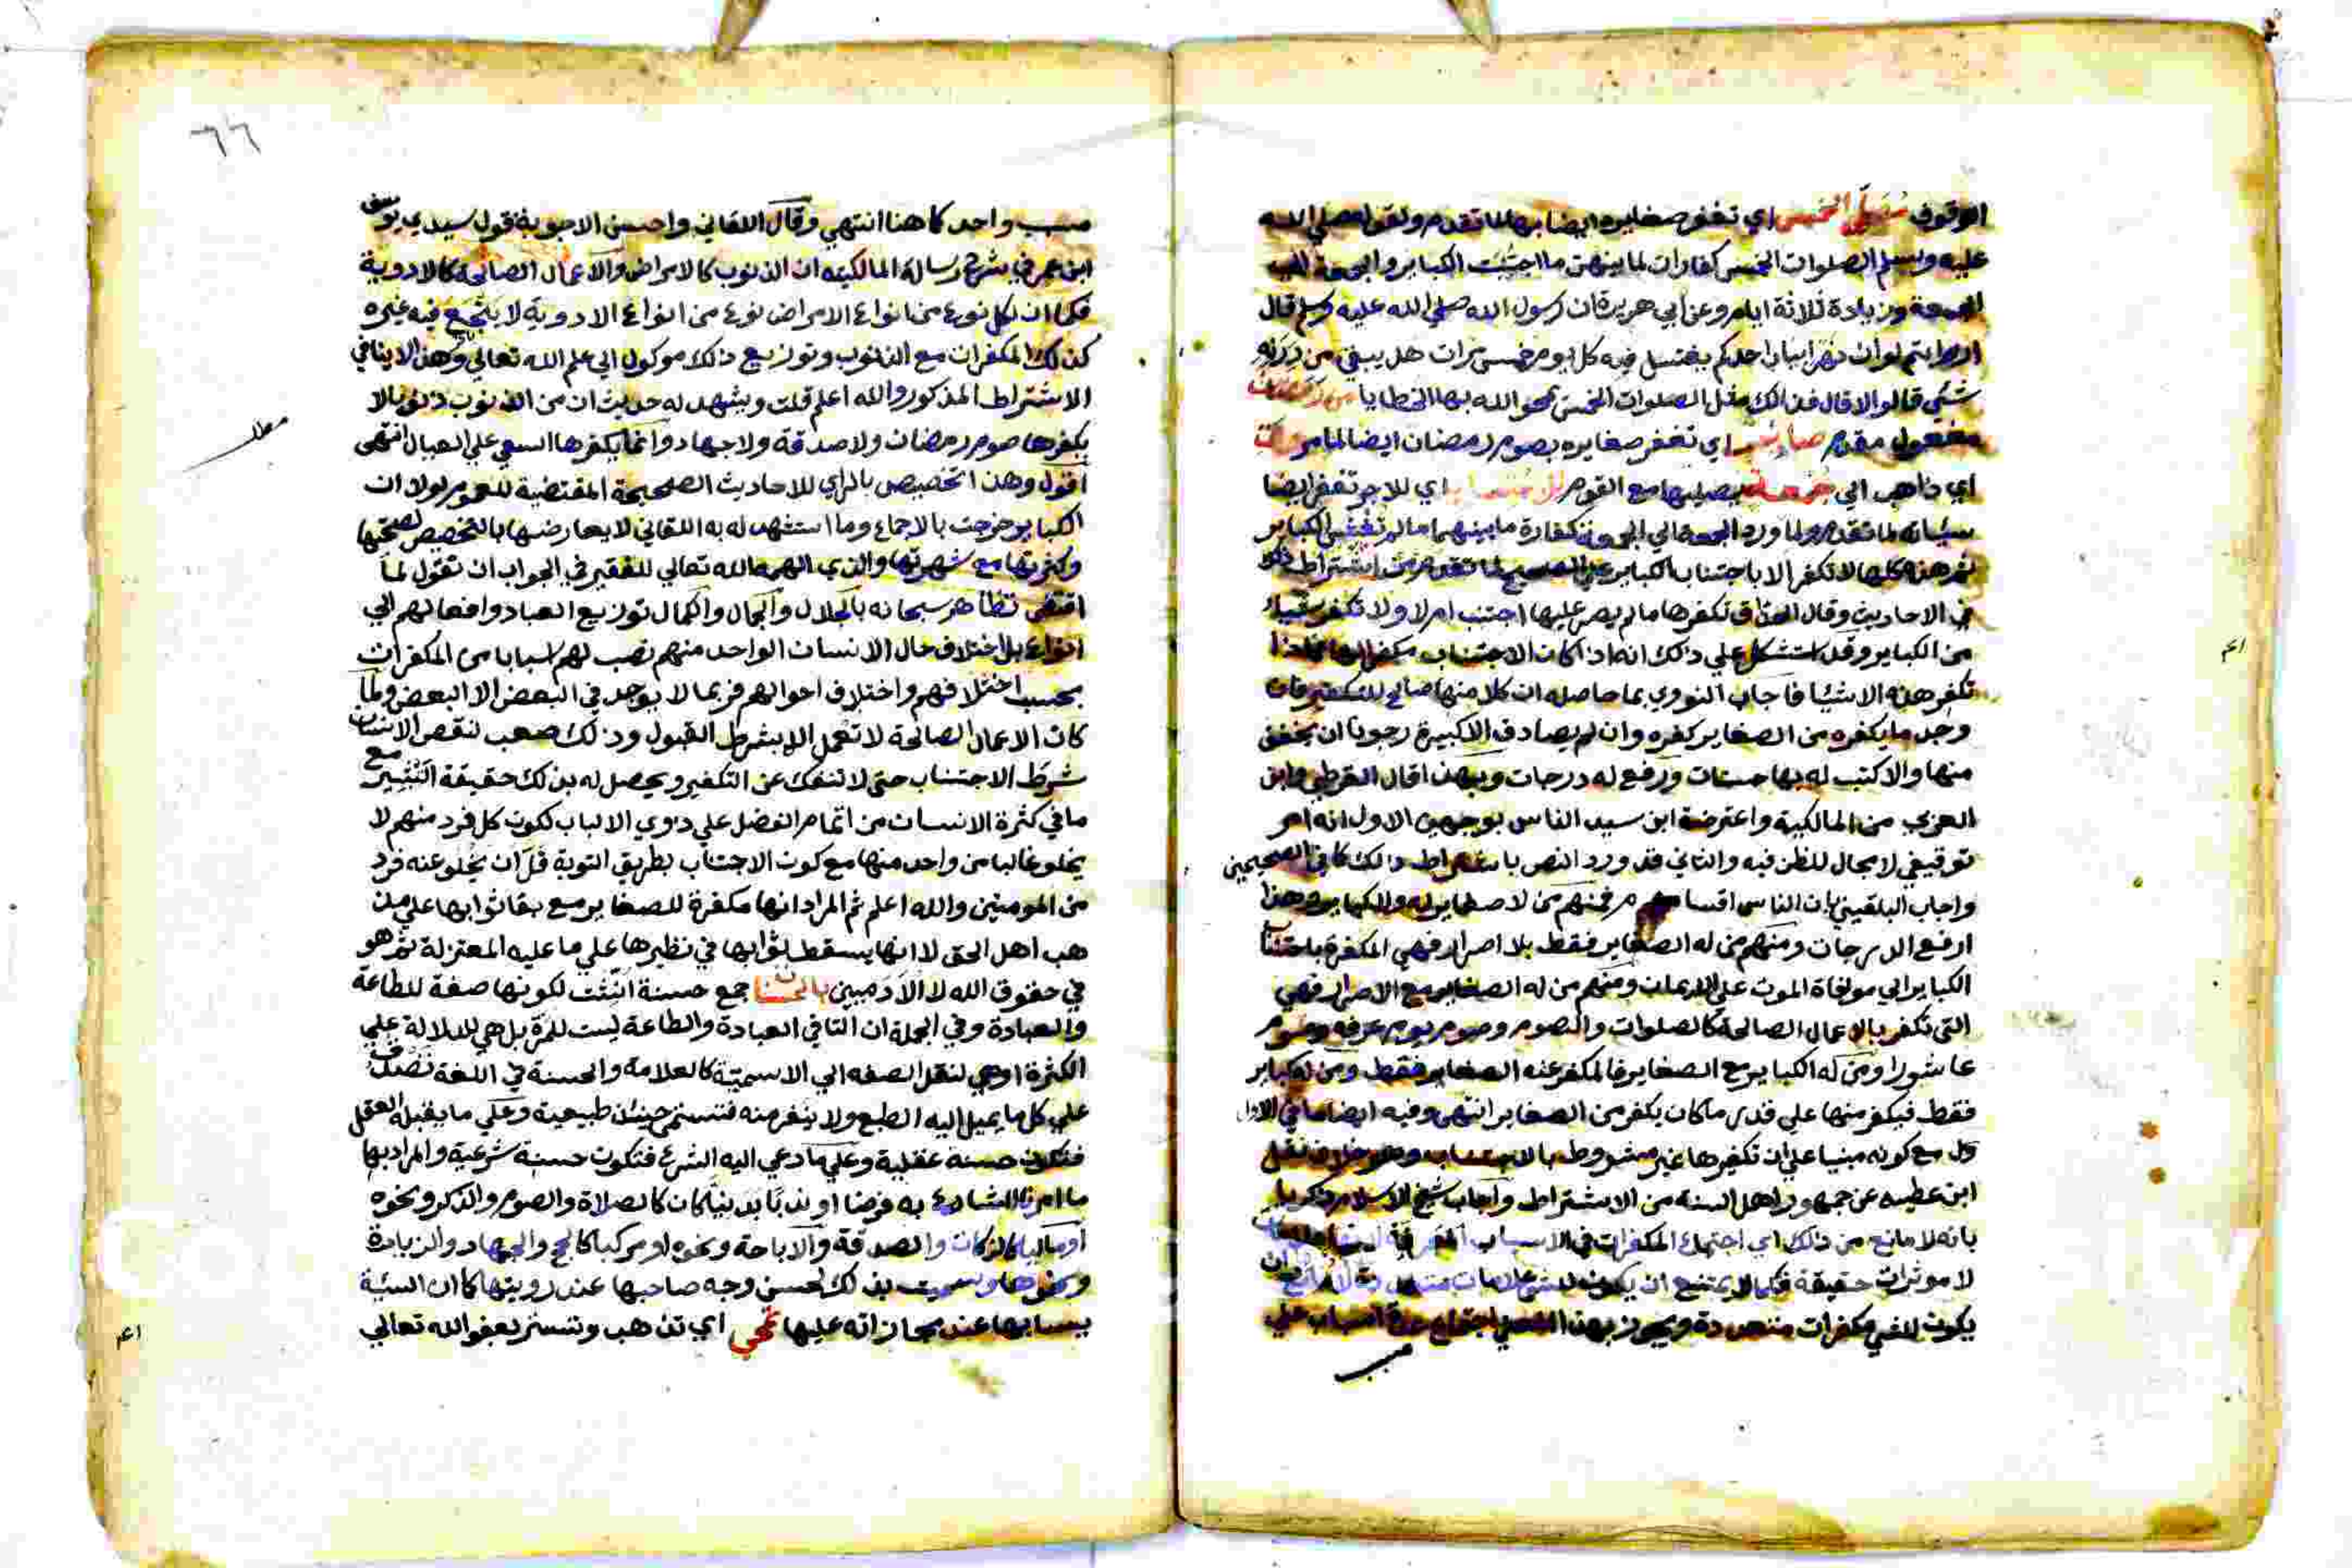 الوقوف مُصَلِّي الخمس اي تغفر صغايره ايضا بها لما تقدم ولقوله صلي الله
عليه وسلم الصلوات الخمس كفارات لما بينهن ما اجتُنبَت الكباير والجمعة الي
الجمعة وزيادة ثلاثة ايام وعن ابي هريرة ان رسول الله صلي الله عليه وسلم قال
ارايتم لوان نهرا بباب احدكم يغتسل فيه كل يوم خمس مرات هل يبقي من دَرَنِهِ
شئ قالوا لا قال فذالك مثل الصلوات الخمس يمحو الله بها الخطايا من رمضان
مفعول مقدم صايم اي تغفر صغايره بصوم رمضان ايضا لما مر
اي ذاهب الي جمعة يصليها مع القوم اي للاجر تغفر ايضا
سيئاته لما تقدم ولما ورد الجمعة الي الجمعة كفارة ما بينهما ما لم تغش الكباير
ثم هذه كلها لا تكفر الا باجتناب الكباير علي الصحيح لما تقدم من اشتراط ذلك
في الاحاديث وقال الحذاق تكفرها ما لم يصر عليها اجتنب ام لا ولا تكفر شيئا
من الكباير وقد استشكل علي ذلك انه اذا كان الاجتناب مكفرا لها فماذا
تكفر هذه الاشيا فاجاب النووي بما حاصله ان كلا منها صالح للتكفير فان
وجد ما يكفره من الصغاير كفره وان لم يصادف الا كبيرة رجونا ان يخفف
منها والا كتب له بها حسنات ورفع له درجات وبهذا قال القرطبي وابن
العربي من المالكية واعترضه ابن سيد الناس بوجهين الاول انه امر
توقيفي لا مجال للظن فيه والثاني قد ورد النص باشتراط ذلك كما في الصحيحين
واجاب البلقيني بان الناس اقسام فمنهم من لا صغاير له ولا كباير وهذا
ارفع الدرجات ومنهم من له الصغاير فقط بلا اصرار فهي المكفرة باجتناب
الكباير الي موافاة الموت علي الايمان ومنهم من له الصغاير مع الاصرار فهي
التي تكفر بالاعمال الصالحة كالصلوات والصوم وصوم يوم عرفه وصوم
عاشورا ومن له الكباير مع الصغاير فالمكفر عنه الصغاير فقط ومن له كباير
فقط فيكفر منها علي قدر ما كان يكفر من الصغاير انتهي وفيه ايضا ما في الاول
ول مع كونه مبنيا علي ان تكفيرها غير مشروط بالاجتناب وهو خلاف نقل
ابن عطيه عن جمهور اهل السنه من الاشتراط واجاب شيخ الاسلام زكريا
بانه لا مانع من ذلك اي اجتماع المكفرات في الاسباب
لا موثرات حقيقة فكما لا يمتنع ان يكون للشئ علامات لا مانع ان
يكون للشئ مكفرات متعددة ويجوز بهذا المعني اجتماع عدة اسباب علي
مسبب
اعم
٦٦
مسبب واحد كما هنا انتهي وقال اللقاني واحسن الاجوبة قول سيدي يوسف
ابن عمر في شرح رسالة المالكيه ان الذنوب كالامراض والاعمال الصالحة كالادوية
فكما ان لكل نوع من انواع الامراض نوع من انواع الادوية لا ينجع فيه غيره
كذلك المكفرات مع الذنوب وتوزيع ذلك موكول الي علم الله تعالي وهذا لا ينافي
الاشتراط المذكور والله اعلم قلت ويشهد له حديث ان من الذنوب ذنوبا لا
يكفرها صوم رمضان ولا صدقة ولا جهاد وانما يكفرها السعي علي العيال انتهي
اقول وهذا تخصيص بالراي للاحاديث الصحيحة المقتضية للعموم لولا ان
الكباير خرجت بالاجماع وما استشهد له به اللقاني لا يعارضها بالتخصيص لصحتها
وكثرتها مع شهرتها والذي الهمه الله تعالي للفقير في الجواب ان نقول لما
اقتضي تظاهر سبحانه بالجلال والجمال والكمال توزيع العباد وافعالهم الي
انواع بل اختلاف حال الانسان الواحد منهم نصب لهم اسبابا من المكفرات
بحسب اختلافهم واختلاف احوالهم فربما لا يوجد في البعض الا البعض ولما
كان الاعمال الصالحة لا تعمل الا بشرط القبول وذلك صعب لنقص الانسان
شرط الاجتناب حتي لا تنفك عن التكفير ويحصل له بذلك حقيقة التَّيْسِير مع
ما في كثرة الانسان من اتمام الفضل علي ذوي الالباب لكون كل فرد منهم لا
يخلو غالبا من واحد منها مع كون الاجتناب بطريق التوبة قلّ ان يخلو عنه فرد
من المومنين والله اعلم ثم المراد انها مكفرة للصغاير مع بقا ثوابها علي مذ
هب اهل الحق لا انها يسقط ثوابها في نظيرها علي ما عليه المعتزلة ثم هو
في حقوق الله لا الآدميين بالحسنات جمع حسنة انِّثت لكونها صفة للطاعة
والعبادة وفي الجملة ان التا في العبادة والطاعة ليست للمرة بل هي للدلالة علي
الكثرة او هي لنقل الصفه الي الاسميّة كالعلامة والحسنة في اللغة تَصْدُق
علي كل ما يميل اليه الطبع ولا ينفر منه فتسمي حينئذ طبيعية وعلي ما يقبله العقل
فتكون حسنة عقلية وعلي ما دعي اليه الشرع فتكون حسنة شرعية والمراد بها
ما امرنا الشارع به فرضا او ندبًا بدنيًا كان كالصلاة والصوم والذكر ونحوه
او ماليا كالزكات والصدقة والاباحة ونحوه او مركبا كالحج والجهاد والزيادة
ونحوها وسميت بذلك لحسن وجه صاحبها عند رويتها كما ان السيئة
يساء بها عند مجازاته عليها تمحي اي تذهب وتتستر بعفو الله تعالي
مطلب
اعم